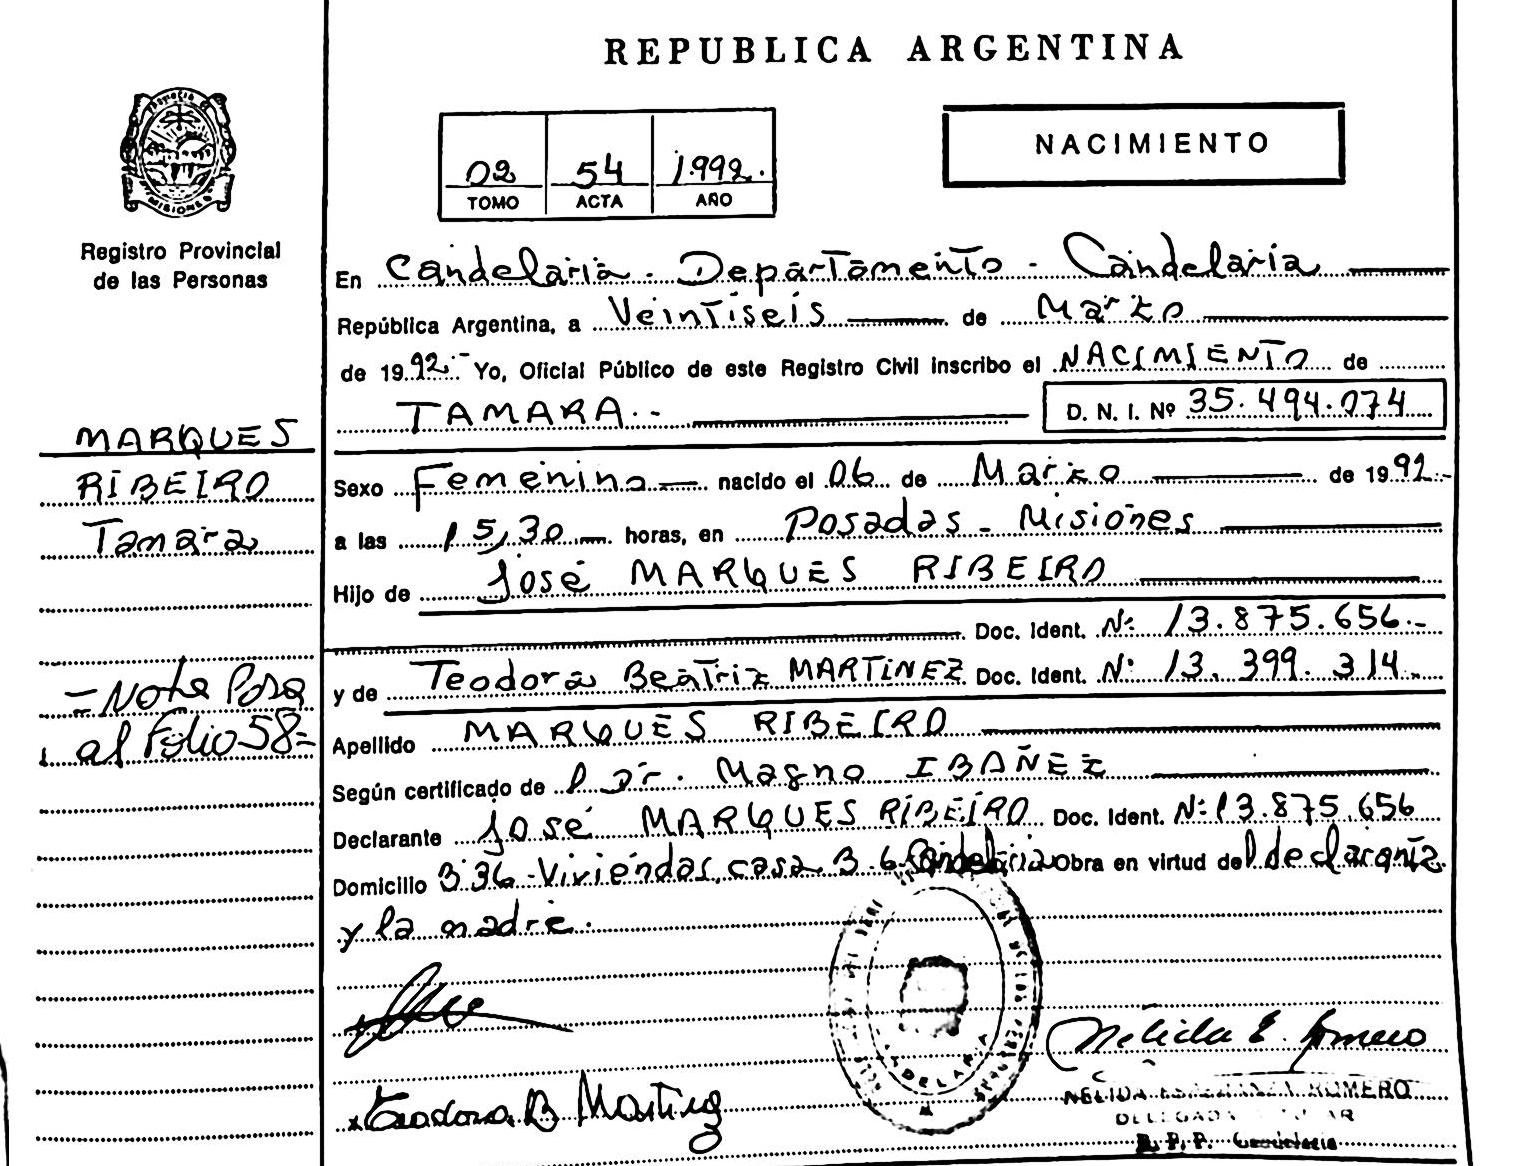 REPUBLICA ARGENTINA
NACIMIENTO
02 54 1.992.
TOMO ACTA AÑO
MISIONES
Registro Provincial
de las Personas
MARQUES
RIBEIRO
Tamara
= Nota Pasa
al Folio 58=
En Candelaria. Departamento - Candelaria
República Argentina, a Veintiseis de Marzo
de 1992.- Yo, Oficial Público de este Registro Civil inscribo el NACIMIENTO de
TAMARA.- D. N. I. Nº 35.494.074
Sexo Femenino nacido el 06 de Marzo de 1992.-
a las 15,30 horas, en Posadas - Misiones
Hijo de José MARQUES RIBEIRO
Doc. Ident. Nº 13.875.656.-
y de Teodora Beatriz MARTINEZ Doc. Ident. Nº 13.399.314.-
Apellido MARQUES RIBEIRO
Según certificado de l Dr. Magno IBAÑEZ
Declarante José MARQUES RIBEIRO Doc. Ident. Nº 13.875.656
Domicilio 336-Viviendas, casa 3-6 Candelaria Obra en virtud del declarante
y la madre.
CANDELARIA
Nélida E. Romero
Teodora B Martinez
NELIDA ESPERANZA ROMERO
DELEGADA TITULAR
R. P. P. Candelaria